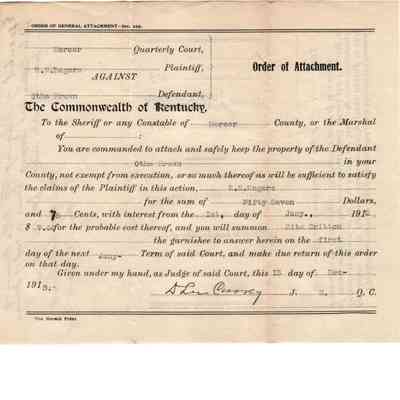 ORDER OF GENERAL ATTACHMENT—Sec. 202.
Mercer Quarterly Court,
Plaintiff,
AGAINST
Order of Attachment.
Defendant,
The Commonwealth of Kentucky,
To the Sheriff or any Constable of Mercer County, or the Marshal
of :
You are commanded to attach and safely keep the property of the Defendant
Otho Brown in your
County, not exempt from execution, or so much thereof as will be sufficient to satisfy
the claims of the Plaintiff in this action, Rogers
for the sum of Fifty Seven Dollars,
and 75 Cents, with interest from the 1st, day of Jany., 191
$ for the probable cost thereof, and you will summon
the garnishee to answer herein on the first
day of the next Jany- Term of said Court, and make due return of this order
on that day.
Given under my hand, as Judge of said Court, this 15 day of
191
J. Q. C.
The Herald Print